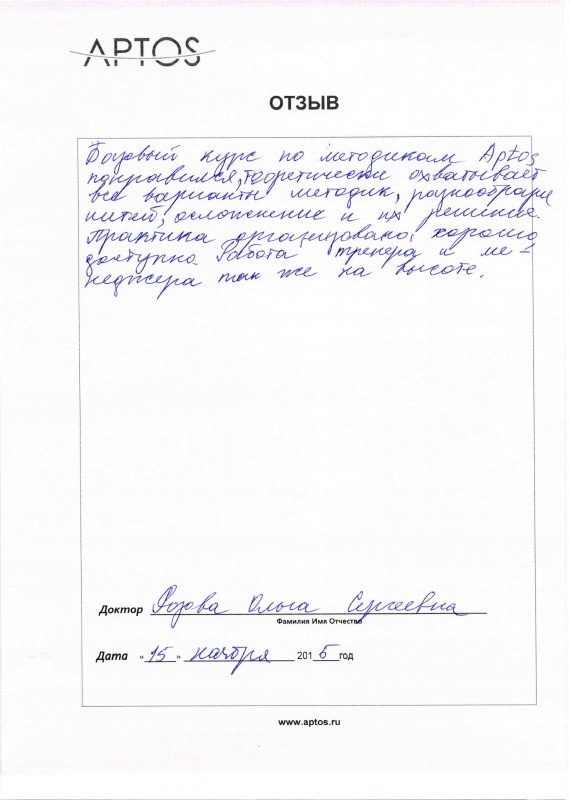 APTOS
ОТЗЫВ
Базовый курс по методикам Aptos
понравился, теоретически охватывает
все варианты методик, разнообразие
нитей, осложнение и их решение.
Практика организована, хорошо
доступно Работа тренера и ме-
неджера так же на высоте.
Доктор Ольга Сергеевна
Фамилия Имя Отчество
Дата "15" ноября 2015 год
www.aptos.ru